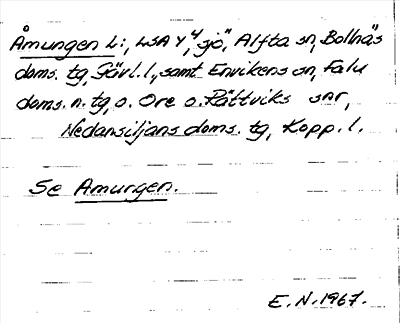 Åmungen L:, LSA Y, 4, sjö", Alfta sn, Bollnäs
doms. tg, Gävl. l., samt Envikens sn, Falu
doms. n. tg, o. Ore o. Rättviks snr,
Nedansiljans doms. tg, Kopp. l.
Se Amungen.
E. N. 1967.